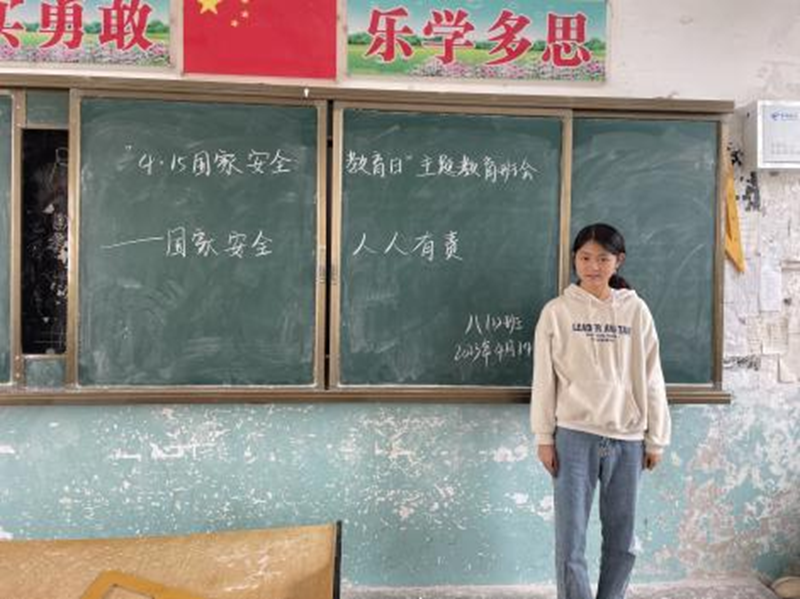 实勇敢
乐学多思
"4·15国家安全教育日"主题教育班会
——国家安全 人人有责
八(1)班
2023年4月1